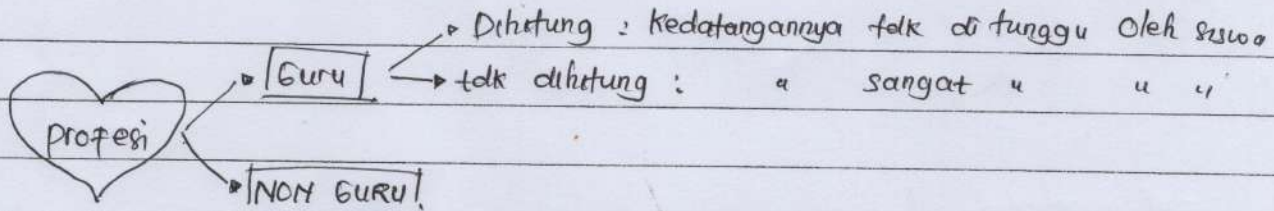 Dihitung : kedatangannya tdk di tunggu oleh siswa
Guru
tdk dihitung : " sangat " " "
profesi
NON GURU